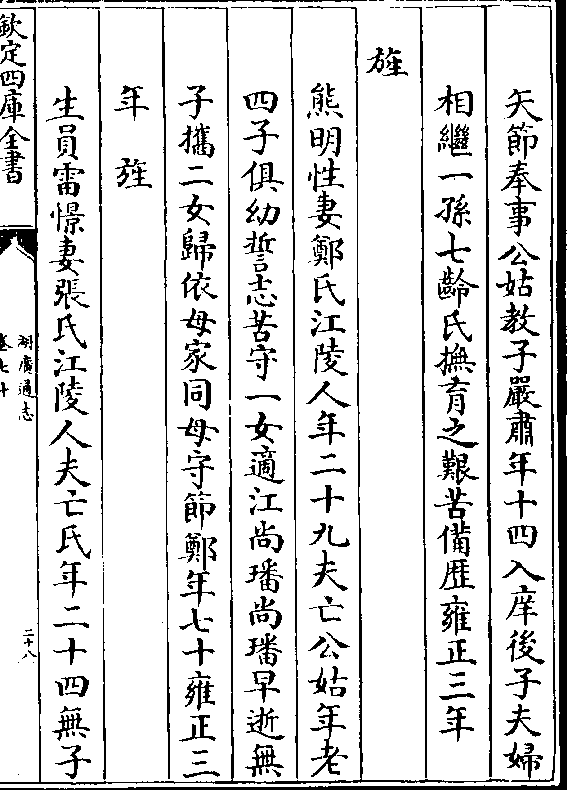 矢節奉事公姑教子嚴肅年十四入庠後子夫婦
相繼一孫七齡氏撫育之艱苦備歴雍正三年
旌
熊明性妻鄭氏江陵人年二十九夫亡公姑年老
四子俱幼誓志苦守一女適江尚璠尚璠早逝無
子攜二女歸依母家同母守節鄭年七十雍正三
年旌
生員雷憬妻張氏江陵人夫亡氏年二十四無子
欽定四庫全書
湖廣通志
卷七十
二十八